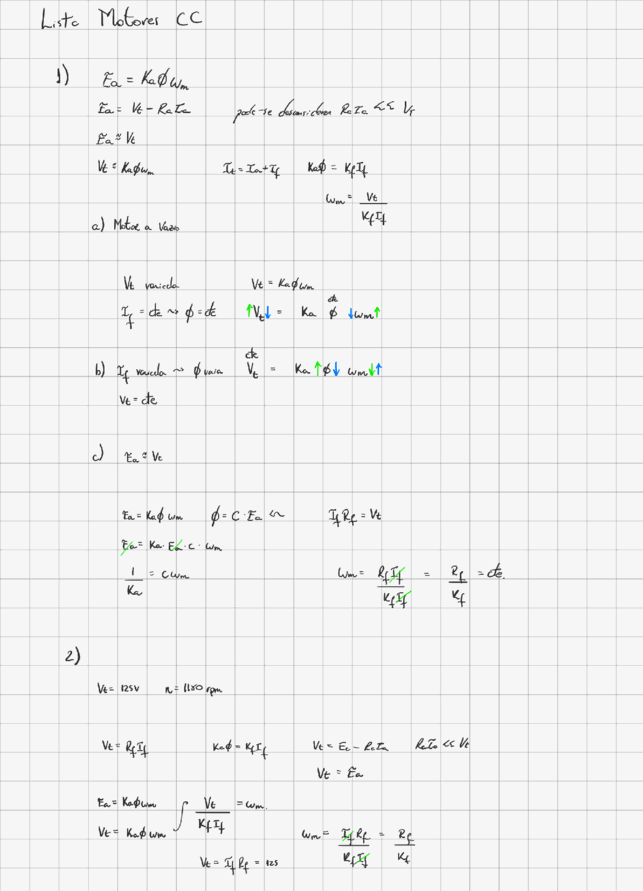 Lista Motores CC
1) Ea = Kaϕωm
Ea = Vt - RaIa pode-se desconsiderar RaIa << Vt
Ea ≈ Vt
Vt = Kaϕωm It = Ia + If Kaϕ = KfIf
ωm = Vt / KfIf
a) Motor a vazio
Vt variada Vt = Kaϕωm
If = cte ~> ϕ = cte ↑Vt↓ = Ka ϕ cte ↓ωm↑
b) If variada ~ ϕ varia Vt cte = Ka ↑ϕ↓ ωm↓↑
Vt = cte
c) Ea ≈ Vt
Ea = Kaϕ ωm ϕ = C · Ea IfRf = Vt
Ea = Ka · Ea · C · ωm
1/Ka = Cωm ωm = RfIf / KfIf = Rf / Kf = cte.
2)
Vt = 125V n = 1180 rpm
Vt = RfIf Kaϕ = KfIf Vt = Ea - RaIa RaIa << Vt
Vt = Ea
Ea = Kaϕωm
Vt = Kaϕωm ∫ Vt / KfIf = ωm. ωm = IfRf / KfIf = Rf / Kf
Vt = IfRf = 125